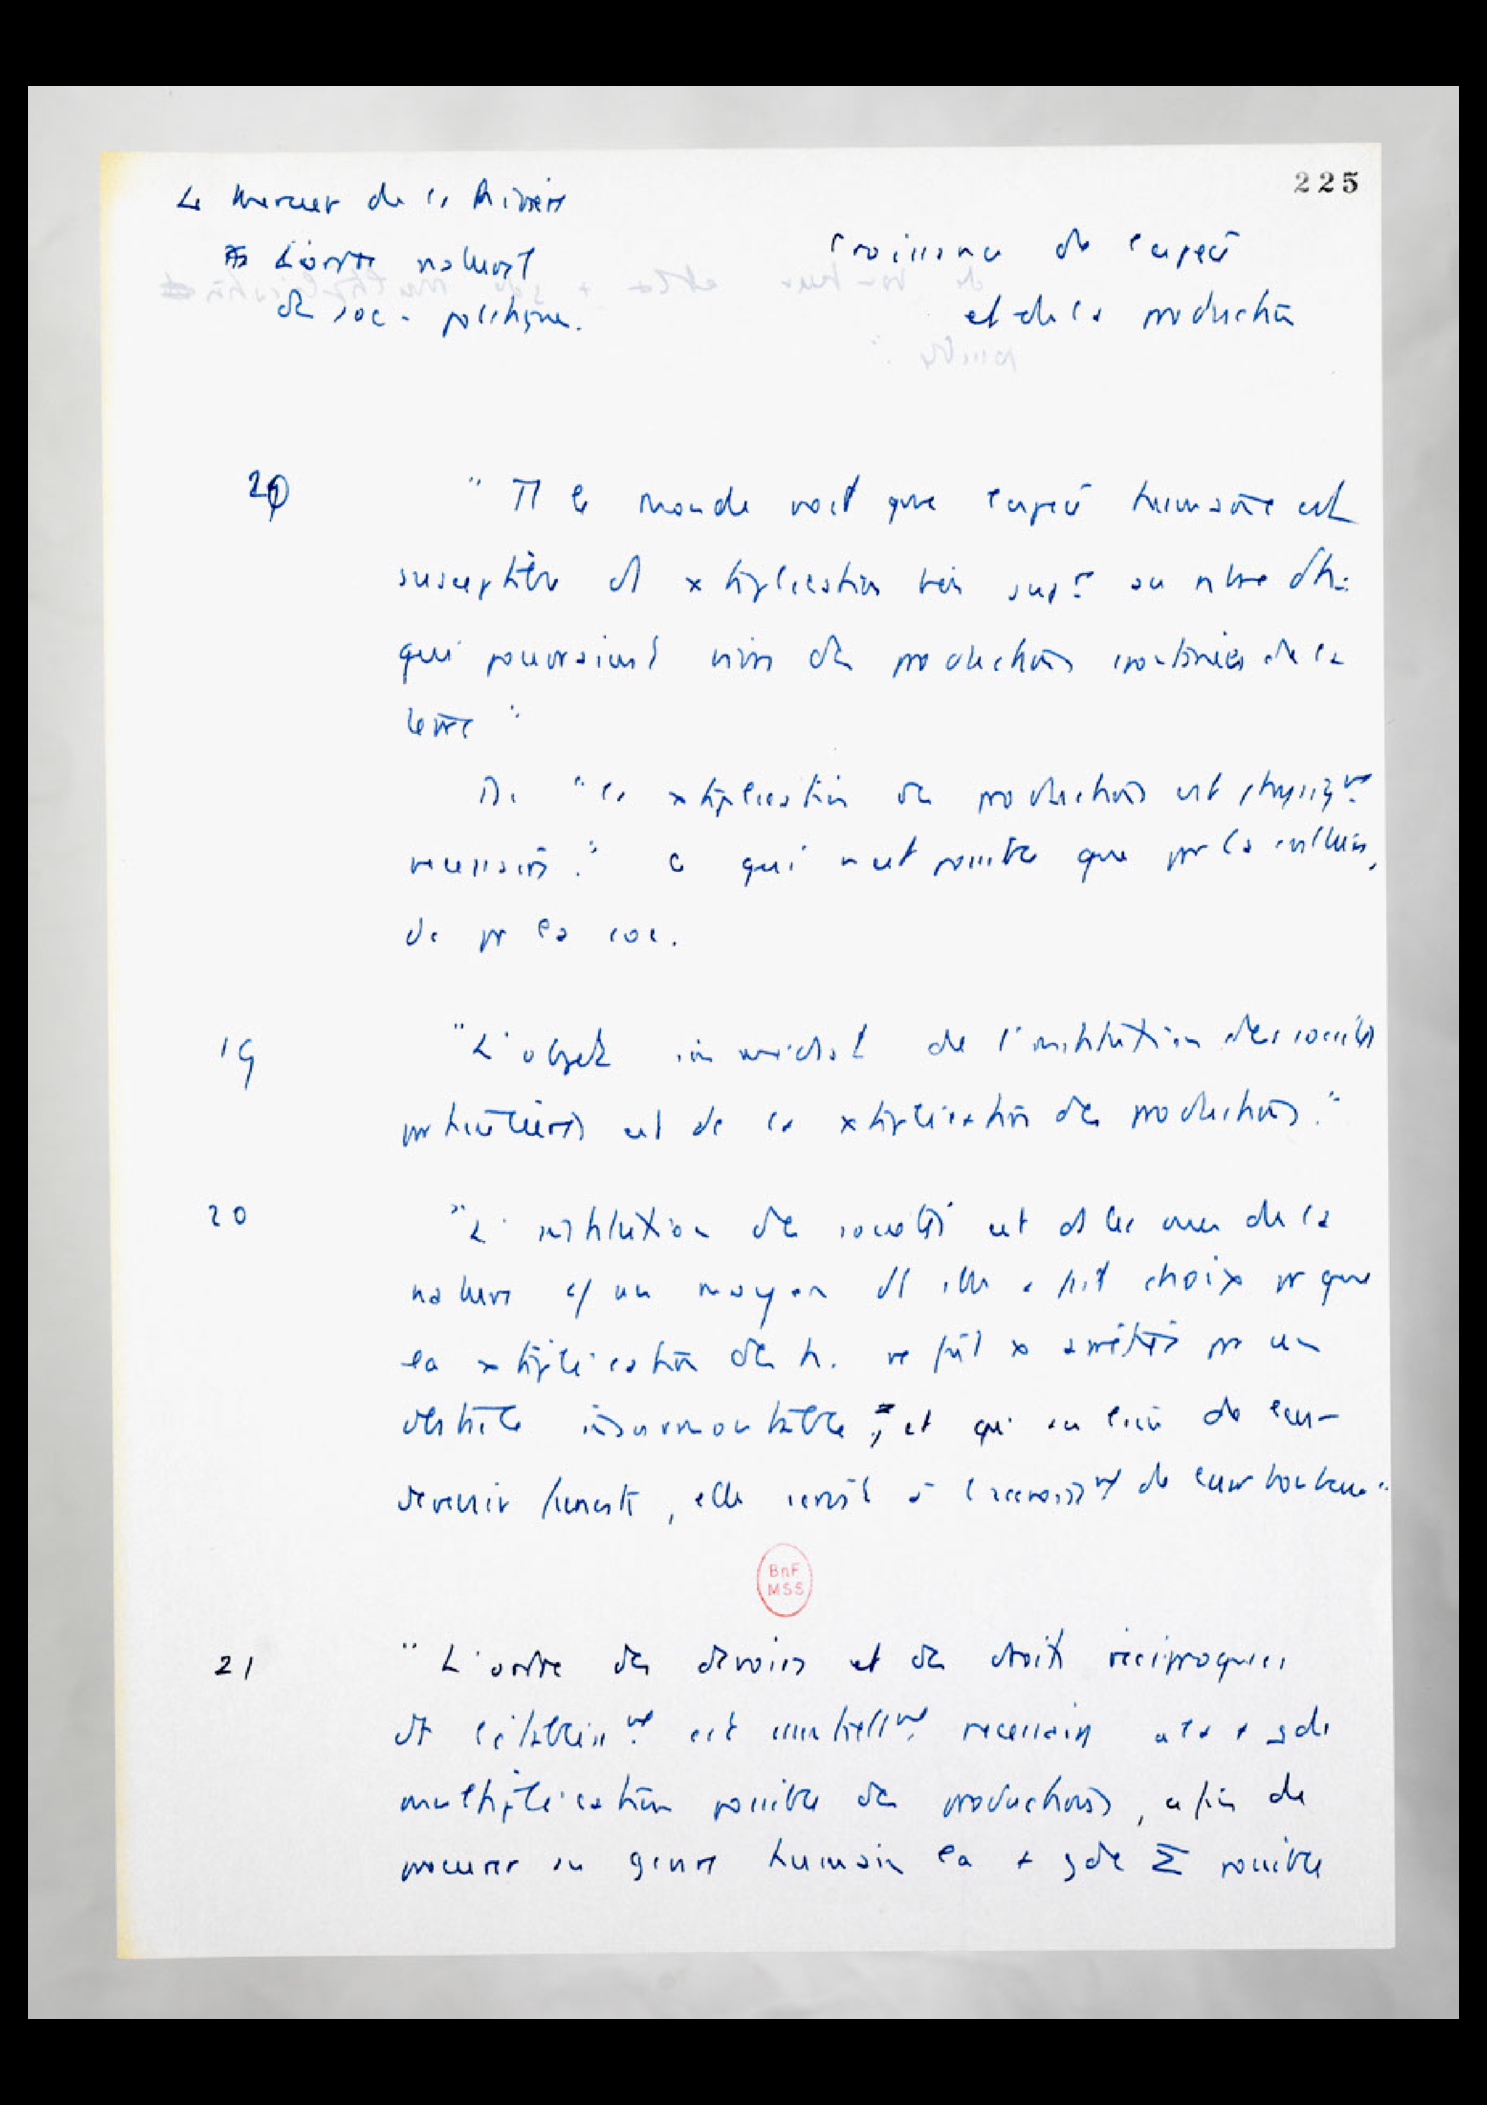 225
Le Mercier de la Rivière
L'ordre naturel
des soc. politiques.
Croissance de l'espèce
et de la production
" Tt le monde voit que l'espèce humaine est
susceptible d' xtiplication bien supre au nbre d'h.
qui pourraient vivre des productions spontanées de la
terre "
Dc " la xtiplication des productions est physiqt
nécessaire. " Ce qui n'est possible que par la culture,
dc par la soc.
19
" L'objet immédiat de l'institution des sociétés
particulières est dc la xtiplication des productions. "
20
" L'institution des sociétés est de la
nature c/ un moyen dt elle a fait choix pr que
la xtiplication des h. ne fût x arrêtée par un
obstacle insurmontable, et qu'au lieu de leur
devenir funeste, elle servît à l'accroisst de leur bonheur "
BnF
MSS
21
" L'ordre des devoirs et des droits réciproques
dt l'établisst est essentiellt nécessaire à la + gde
multiplication possible des productions, afin de
procurer au genre humain la + gde Σ possible